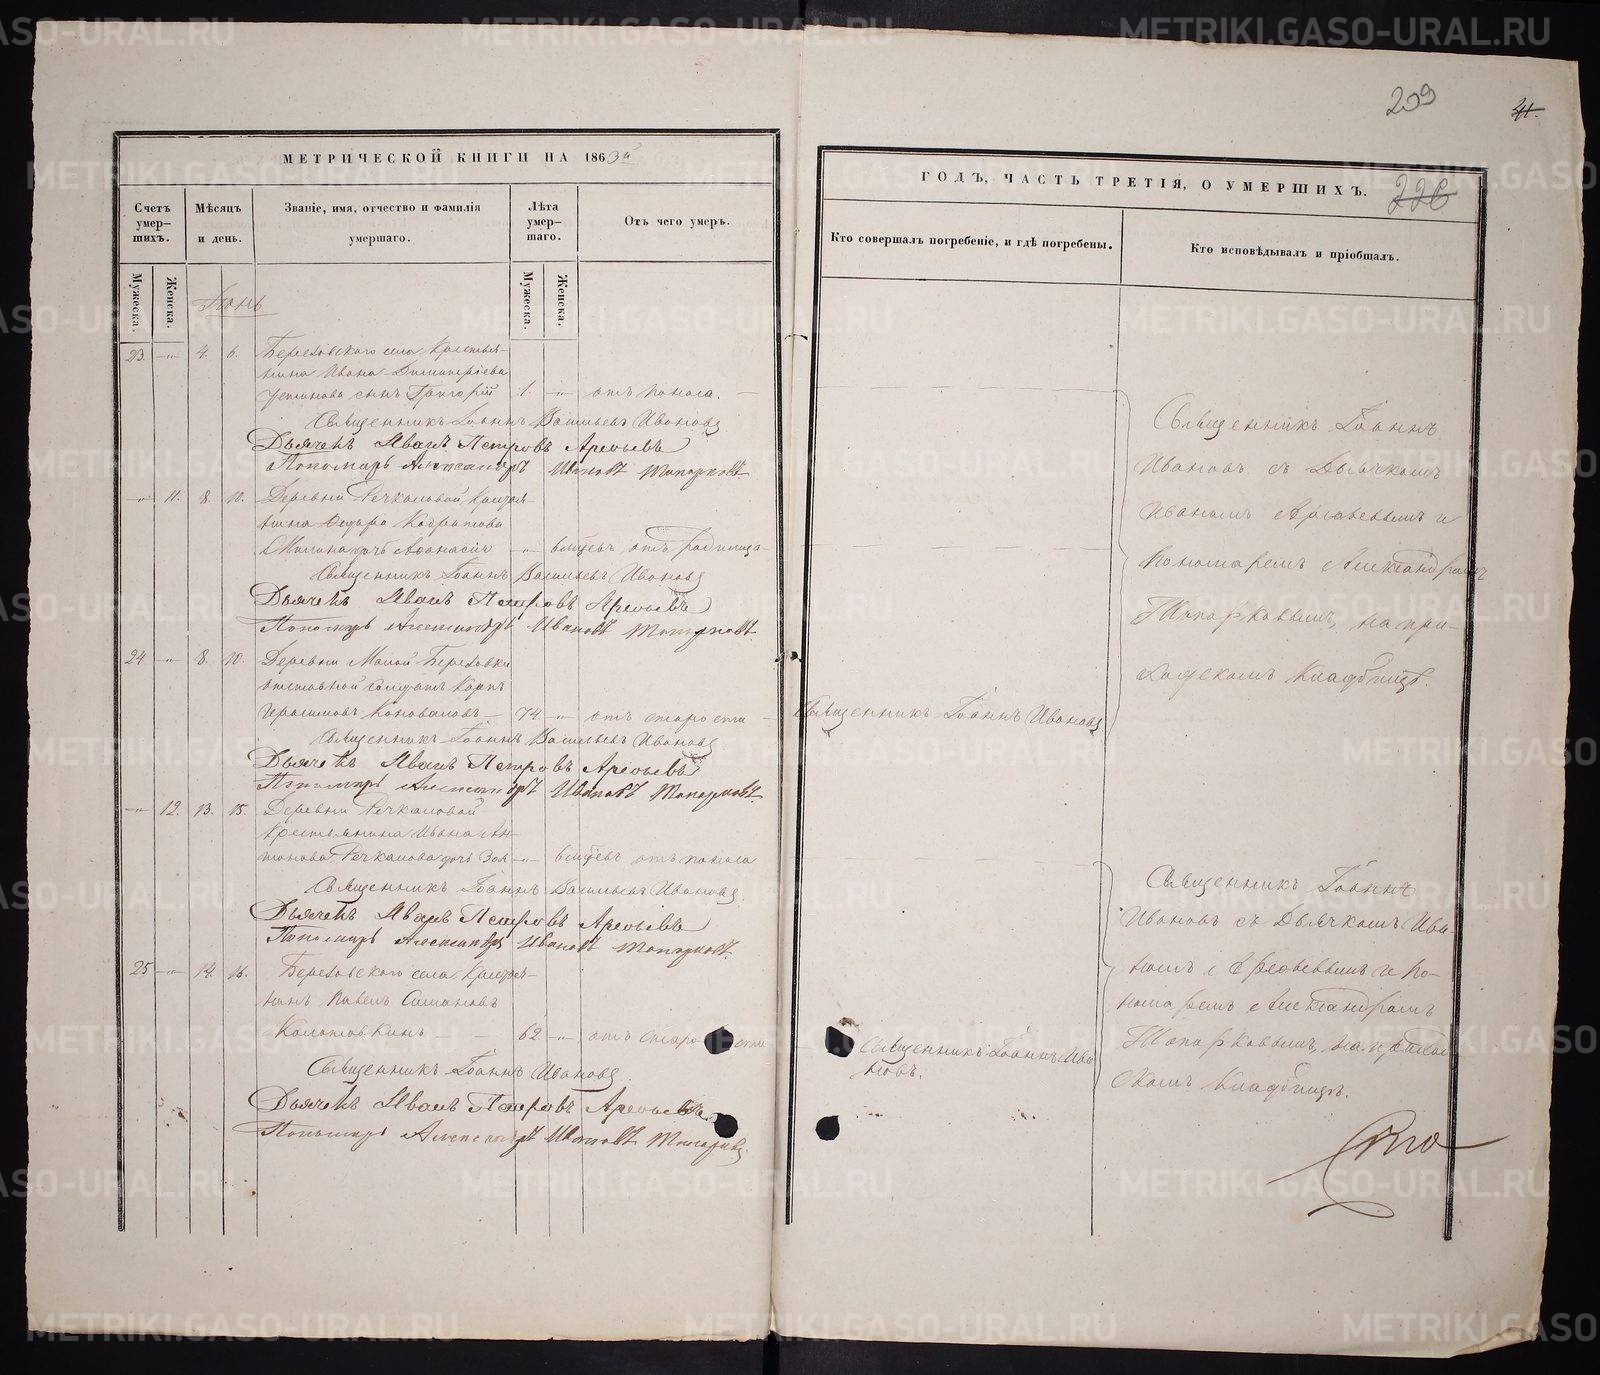 209
41.
МЕТРИЧЕСКОЙ КНИГИ НА 1863й
Счетъ умер-шихъ.
Мѣсяцъ и день.
Званіе, имя, отчество и фамилія умершаго.
Лѣта умер-шаго.
Отъ чего умеръ.
Мужеска.
Женска.
Мужеска.
Женска.
Іюнь
23. — „ — 4. 6. Березовскаго села Крестья-
нина Ивана Димитріева
Устинова сынъ Григорій 1. — „ — отъ поноса. —
Священникъ Іоаннъ Васильевъ Ивановъ
Дьячекъ Иванъ Петровъ Арефьевъ
Пономарь Александръ Ивановъ Топорковъ
— „ — 11. 8. 10. Деревни Речкаловой, Крестья-
нина Федора
дочь — „ — 6 мѣсецъ отъ родимца —
Священникъ Іоаннъ Васильевъ Ивановъ
Дьячекъ Иванъ Петровъ Арефьевъ
Пономарь Александръ Ивановъ Топорковъ
24 — „ — 8. 10. Деревни Малой Березовки
отставной Солдатъ Карпъ
Герасимовъ Коноваловъ — 74 — „ — отъ старости —
Священникъ Іоаннъ Васильевъ Ивановъ
Дьячекъ Иванъ Петровъ Арефьевъ
Пономарь Александръ Ивановъ Топорковъ.
— „ — 12. 13. 15. Деревни Речкаловой
Крестьянина Ивана Ан-
тонова Речкалова дочь Зоя — „ — 6 мѣсецъ отъ поноса
Священникъ Іоаннъ Васильевъ Ивановъ
Дьячекъ Иванъ Петровъ Арефьевъ
Пономарь Александръ Ивановъ Топорковъ.
25 — „ — 14. 16. Березовскаго села Крестья-
нинъ Павелъ Симановъ
— 62 — „ — отъ старости
Священникъ Іоаннъ Ивановъ
Дьячекъ Иванъ Петровъ Арефьевъ
Пономарь Александръ Ивановъ Топорковъ
ГОДЪ, ЧАСТЬ ТРЕТІЯ, О УМЕРШИХЪ.
226
Кто совершалъ погребеніе, и гдѣ погребены.
Кто исповѣдывалъ и пріобщалъ.
Священникъ Іоаннъ
Ивановъ съ Дьячкомъ
Иваномъ Арефьевымъ и
Пономаремъ Александромъ
Топорковымъ, на при-
ходскомъ Кладбищѣ.
Священникъ Іоаннъ Ивановъ
Священникъ Іоаннъ
Ивановъ съ Дьячкомъ Ива-
номъ Арефьевымъ и По-
номаремъ Александромъ
Топорковымъ, на приход-
скомъ Кладбищѣ.
Священникъ Іоаннъ Ива-
новъ.
METRIKI.GASO-URAL.RU